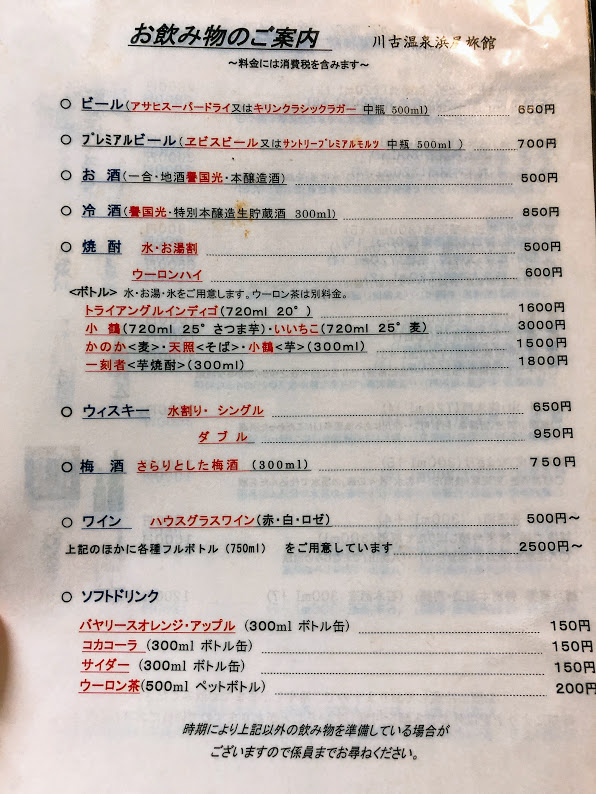 お飲み物のご案内　川古温泉浜屋旅館
～料金には消費税を含みます～
○ ビール(アサヒスーパードライ又はキリンクラシックラガー 中瓶 500ml) 650円
○ プレミアルビール(ヱビスビール又はサントリープレミアルモルツ 中瓶 500ml ) 700円
○ お 酒(一合・地酒譽国光・本醸造酒) 500円
○ 冷 酒(譽国光・特別本醸造生貯蔵酒 300ml) 850円
○ 焼 酎 水・お湯割 500円
ウーロンハイ 600円
<ボトル> 水・お湯・氷をご用意します。ウーロン茶は別料金。
トライアングルインディゴ(720ml 20°) 1600円
小 鶴(720ml 25°さつま芋)・いいちこ(720ml 25°麦) 3000円
かのか<麦>・天照<そば>・小鶴<芋>(300ml) 1500円
一刻者<芋焼酎>(300ml) 1800円
○ ウィスキー 水割り・ シングル 650円
ダ ブ ル 950円
○ 梅 酒 さらりとした梅酒 (300ml) 750円
○ ワイン ハウスグラスワイン(赤・白・ロゼ) 500円～
上記のほかに各種フルボトル (750ml) をご用意しています 2500円～
○ ソフトドリンク
バヤリースオレンジ・アップル (300ml ボトル缶) 150円
コカコーラ (300ml ボトル缶) 150円
サイダー (300ml ボトル缶) 150円
ウーロン茶(500ml ペットボトル) 200円
時期により上記以外の飲み物を準備している場合が
ございますので係員までお尋ねください。